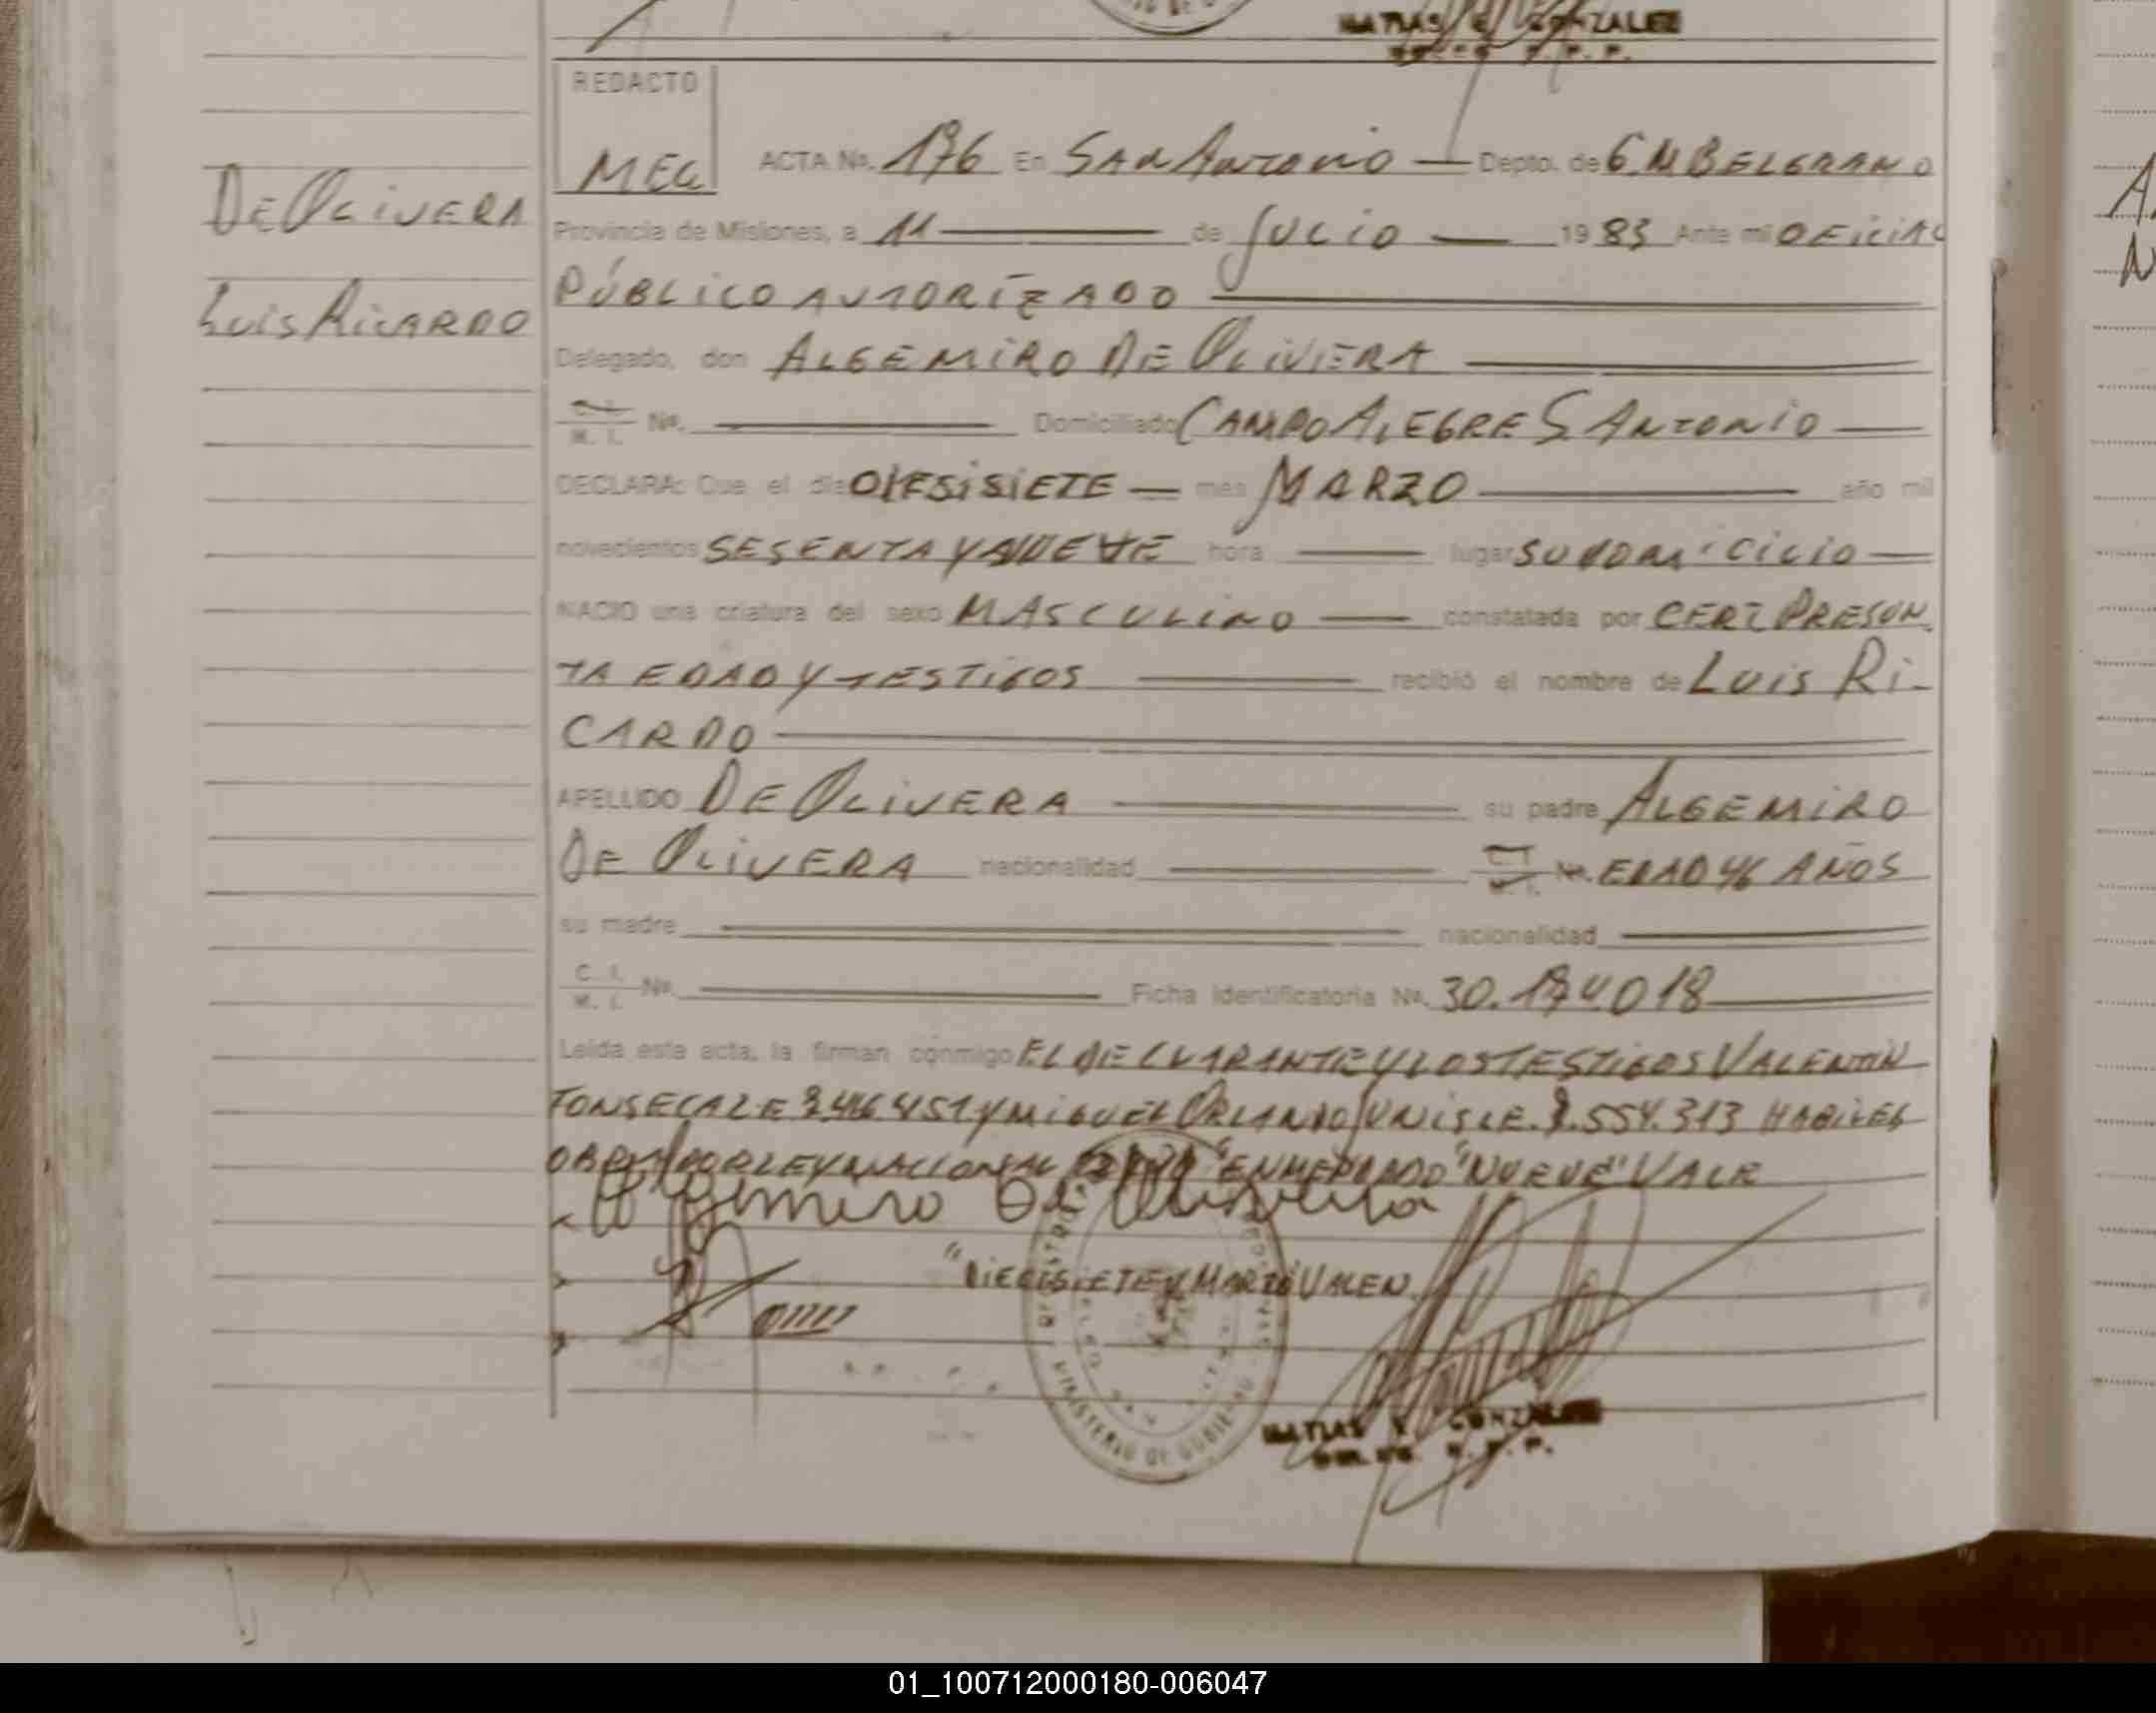 MATIAS GONZALEZ
REDACTO
MEG
ACTA No. 176 En SAN ANTONIO Depto. de G.M BELGRANO
DE OLIVERA
Provincia de Misiones, a 11 de JULIO 1983 Ante mi OFICIAL
PÚBLICO AUTORIZADO
LUIS RICARDO
Delegado, don ALGEMIRO DE OLIVERA
C. I. M. I. No. Domiciliado CAMPO ALEGRE S. ANTONIO
DECLARA: Que el dia DIESISIETE mes MARZO año mil
novecientos SESENTA Y NUEVE hora lugar SU DOMICILIO
NACIO una criatura del sexo MASCULINO constatada por CERT PRESUN
TA EDAD Y TESTIGOS recibió el nombre de LUIS RI-
CARDO
APELLIDO DE OLIVERA su padre ALGEMIRO
DE OLIVERA nacionalidad C. I. M. I. No. EDAD 46 AÑOS
su madre nacionalidad
C. I. M. I. No. Ficha Identificatoria No. 30.174018
Leída esta acta, la firman conmigo EL DECLARANTE Y LOS TESTIGOS VALENTIN
FONSECA L E Y MIGUEL ORLANDO L.E. .554.313 HABILES
POR LEY NACIONAL "ENMENDADO "NUEVE" VALE
"DIECISIETE Y MARZO" VALEN
MINISTERIO DE GOBIERNO
MATIAS GONZALEZ
01_100712000180-006047